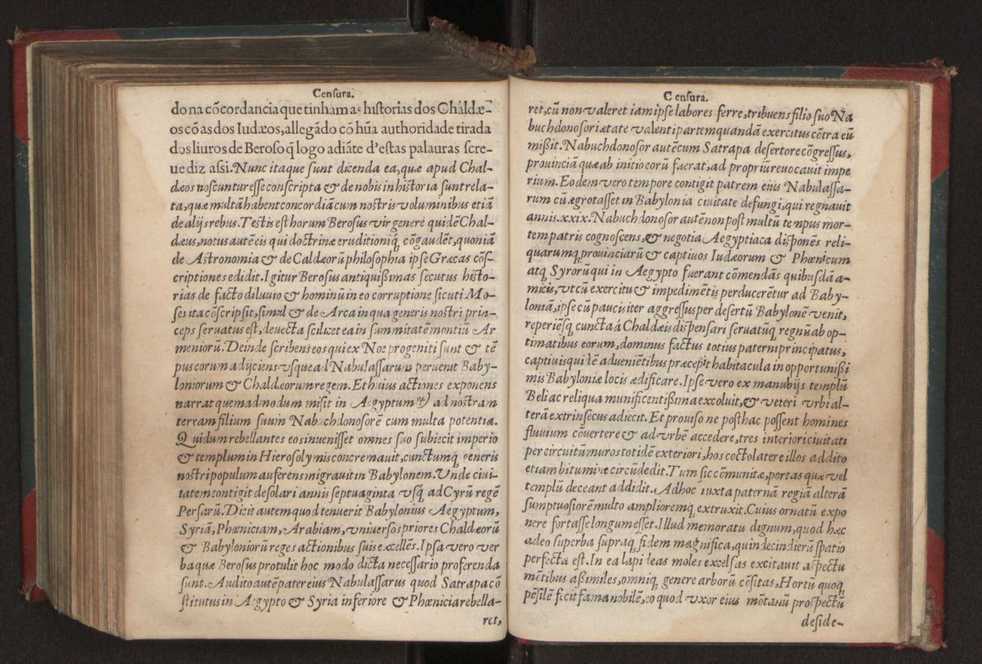 Censura.
do na cõcordancia que tinham as historias dos Chaldæ-
os cõ as dos Iudæos, allegãdo cõ hũa authoridade tirada
dos liuros de Beroso q̃ logo adiãte d'estas palauras scre-
ue diz assi. Nunc itaque sunt dicenda ea, quæ apud Chal-
dæos noscuntur esse conscripta & de nobis in historia sunt rela-
ta, quæ multã habent concordiã cum nostris voluminibus etiã
de alijs rebus. Testis est horum Berosus vir genere quidẽ Chal-
dæus, notus autẽ eis qui doctrinæ eruditioniq; cõgaudẽt, quoniã
de Astronomia & de Caldæorũ philosophia ipse Græcas cõs-
criptiones edidit. Igitur Berosus antiquißimas secutus histo-
rias de facto diluuio & hominũ in eo corruptione sicuti Mo-
ses ita cõscripsit, simul & de Arca in qua generis nostri prin-
ceps seruatus est, deuecta scilicet ea in summitatẽ montiũ Ar
meniorũ. Deinde scribens eos qui ex Noe progeniti sunt & tẽ
pus eorum adijciens vsque ad Nabulassarum peruenit Baby-
loniorum & Chaldæorum regem. Et huius actiones exponens
narrat quemadmodum misit in Aegyptum & ad nostram
terram filium suum Nabuchdonosorẽ cum multa potentia.
Qui dum rebellantes eos inuenisset omnes suo subiecit imperio
& templum in Hierosolymis concremauit, cunctumq; generis
nostri populum auferens migrauit in Babylonem. Vnde ciui-
tatem contigit desolari annis septuaginta vsq; ad Cyrũ regẽ
Persarũ. Dicit autem quod tenuerit Babylonius Aegyptum,
Syriã, Phœniciam, Arabiam, vniuersos priores Chaldeorũ
& Babyloniorũ reges actionibus suis excellẽs. Ipsa vero ver
ba quæ Berosus protulit hoc modo dicta necessario proferenda
sunt. Audito autẽ pater eius Nabulassarus quod Satrapa cõ
stitutus in Aegypto & Syria inferiore & Phœnicia rebella-
ret,
Censura.
ret, cũ non valeret iam ipse labores ferre, tribuens filio suo Na
buchdonosori ætate valenti partem quandã exercitus cõtra eũ
misit. Nabuchdonosor autẽ cum Satrapa desertore cõgressus,
prouinciã quæ ab initio eorũ fuerat, ad propriũ reuocauit impe
rium. Eodem vero tempore contigit patrem eius Nabulassa-
rum cũ ægrotasset in Babylonia ciuitate defungi, qui regnauit
annis. xxix. Nabuchdonosor autẽ non post multũ tempus mor-
tem patris cognoscens, & negotia Aegyptiaca dispõnẽs reli-
quarumq; prouinciarũ & captiuos Iudæorum & Phœnicum
atq; Syrorũ qui in Aegypto fuerant cõmendãs quibusdã a-
micis, vt cũ exercitu & impedimẽtis perducerẽtur ad Baby-
loniã, ipse cũ paucis iter aggressus per desertũ Babylonẽ venit,
reperiẽsq; cuncta à Chaldæis dispensari seruatũq; regnũ ab op-
timatibus eorum, dominus factus totius paterni principatus,
captiuis quidẽ aduenientibus præcepit habitacula in opportunißi
mis Babyloniæ locis ædificare. Ipse vero ex manubijs templũ
Beli ac reliqua munificentißima excoluit, & veteri vrbi al-
terã extrinsecus adiecit. Et prouiso ne posthac possent homines
fluuium cõuertere & ad vrbẽ accedere, tres interiori ciuitati
per circuitũ muros totidẽ exteriori, hos cocto latere illos addito
etiam bitumine circũdedit. Tum sic cõmunita, portas quæ vel
templũ deceant addidit. Adhoc iuxta paternã regiã alterã
sumptuosiorẽ multo ampliorẽmq; extruxit. Cuius ornatũ expo
nere fortasse longum esset. Illud memoratu dignum, quod hæc
adeo superba supraq; fidem magnifica, quindecim dierũ spatio
perfecta est. In ea lapideas moles excelsas excitauit aspectu
mõtibus assimiles, omniq; genere arborũ cõsitas, Hortũ quoq;
pẽsilẽ fecit fama nobilẽ, eo quod vxor eius mõtanũ prospectũ
deside-